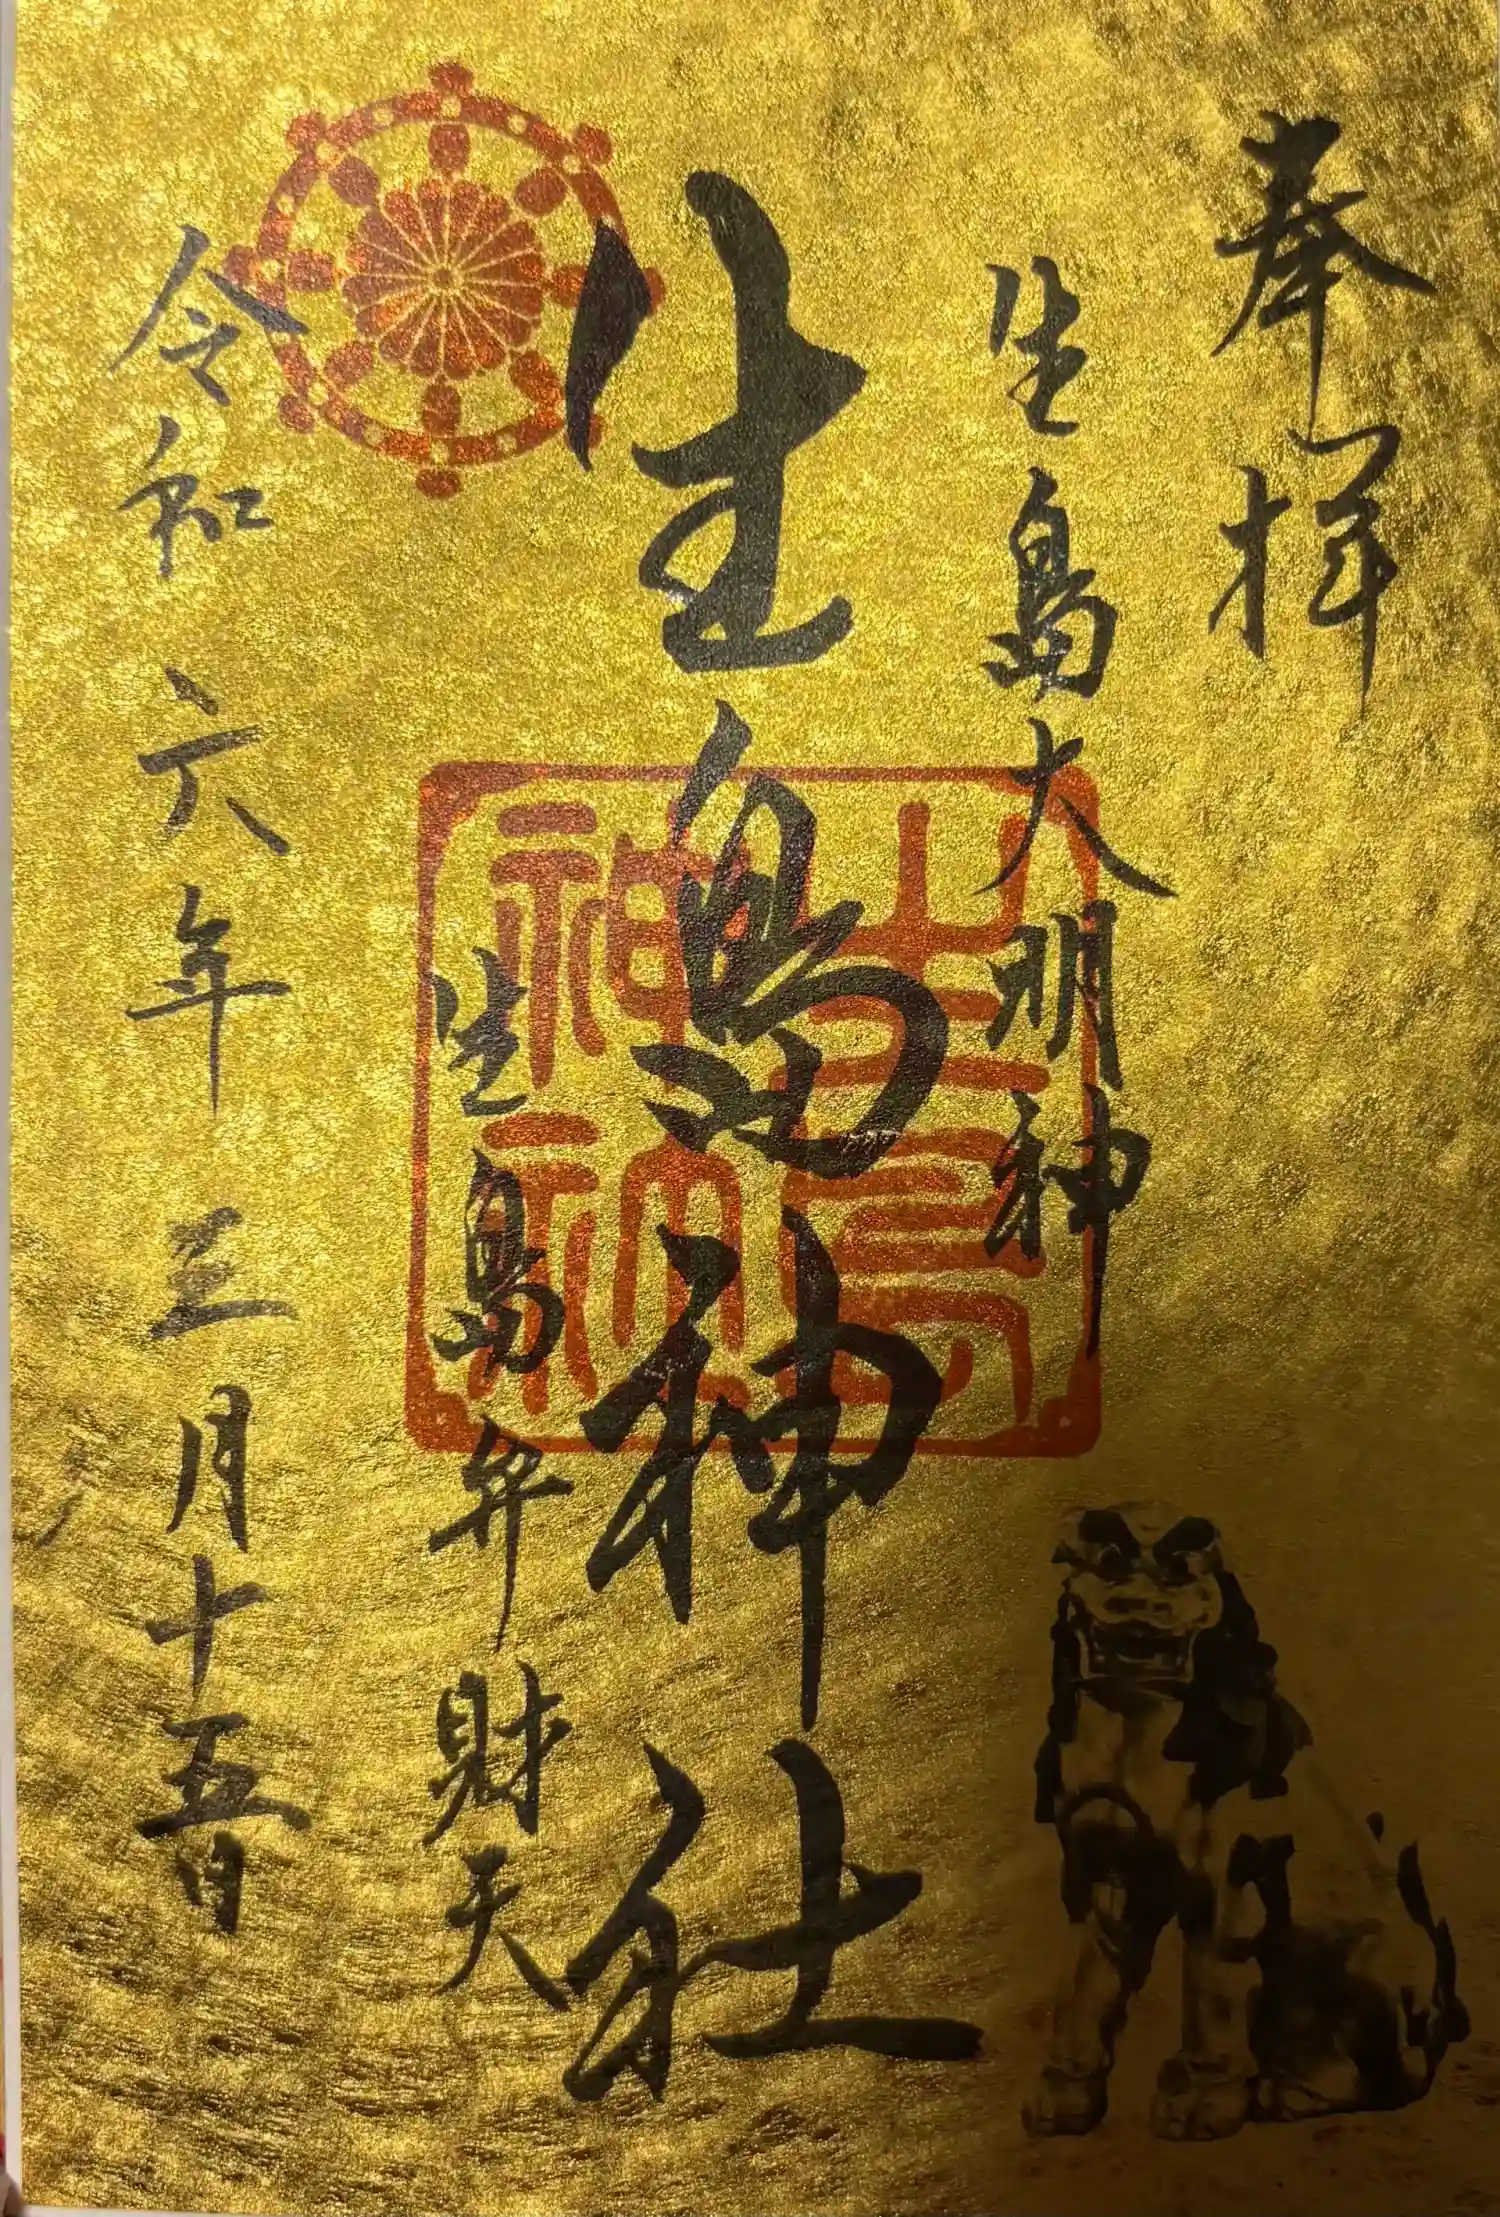 奉拝
生島大明神
生島神社
生島神社
生島弁財天
令和六年三月十五日